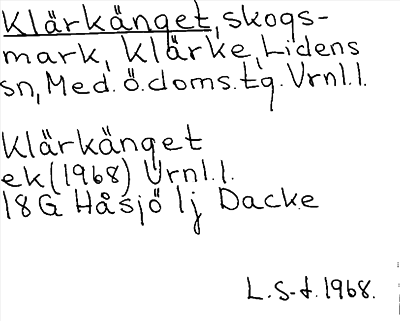 Klärkänget, skogs-
mark, Klärke, Lidens
sn, Med. ö. doms. tg. Vrnl. l.
Klärkänget
ek (1968) Vrnl. l.
18G Håsjö lj Dacke
L. S-d. 1968.